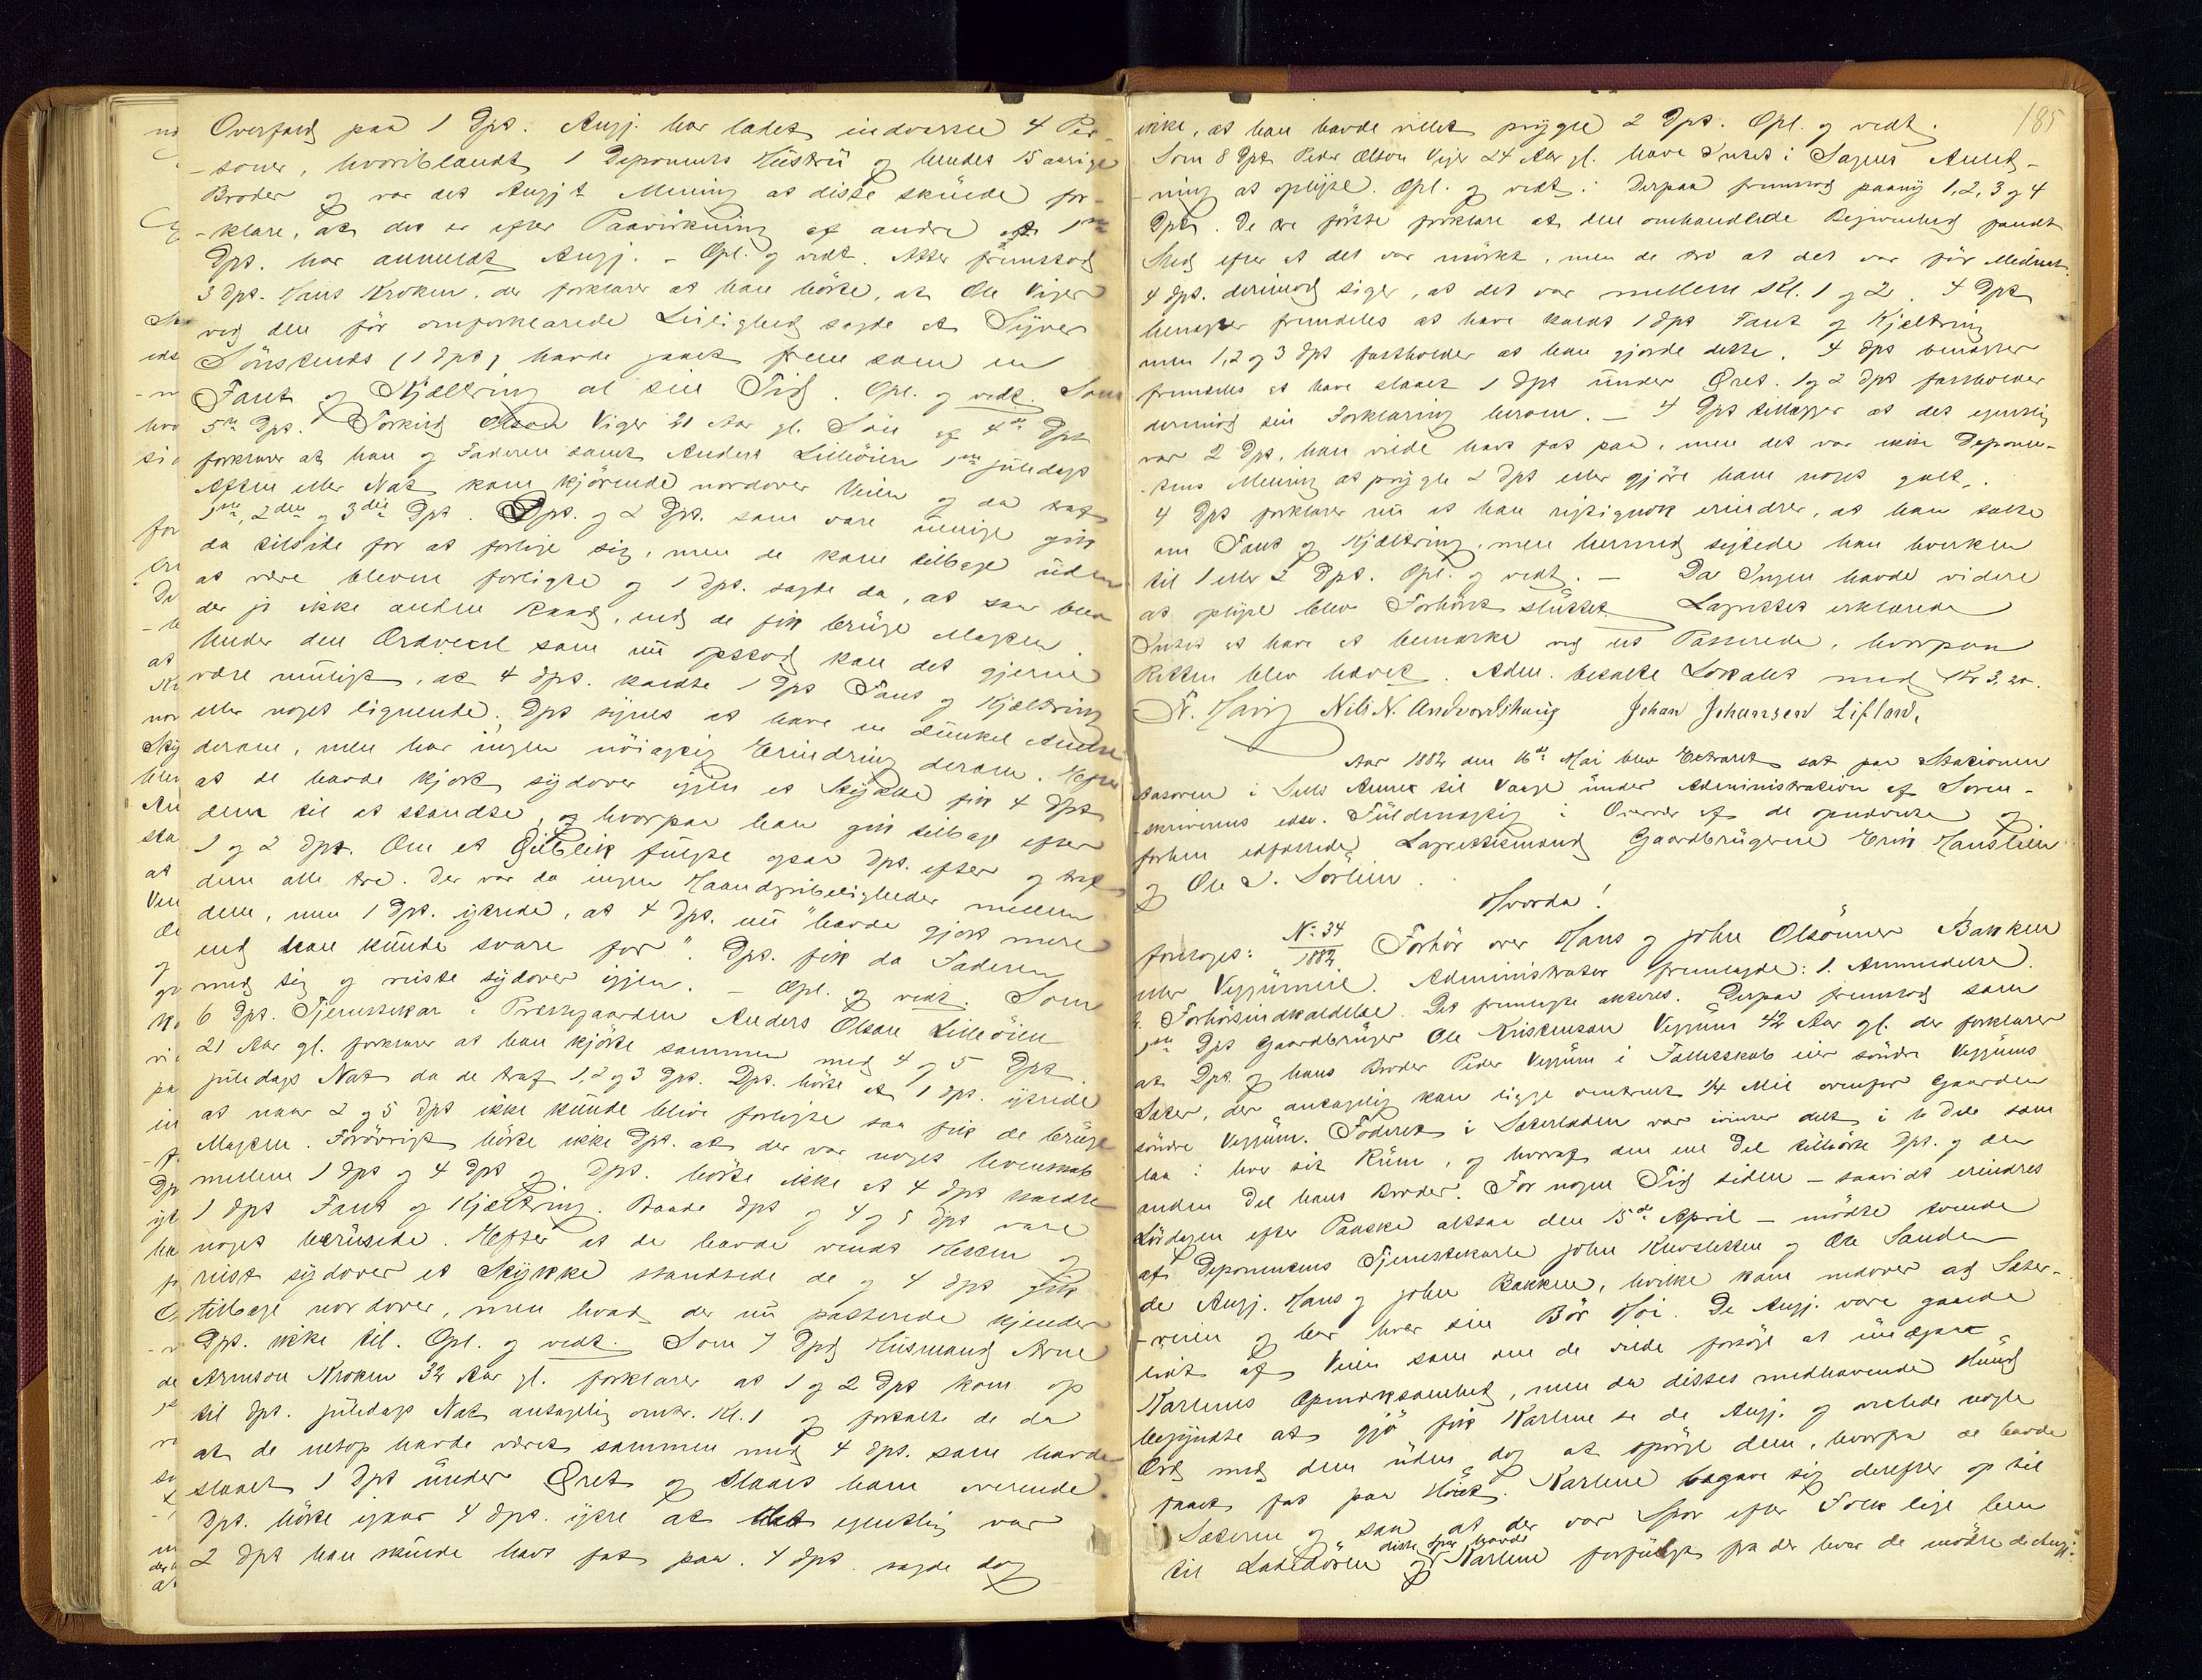 Overfald paa 1 Dpt. Angj. har ladet indvarsle 4 Per-
-soner, hvoriblandt 1 Deponents Hustru og hendes 15 aarige
Broder og var det Angjt Mening at disse skulde for-
-klare, at det er efter Paavirkning af andre at 1ste
Dpt. har anmeldt Angj. - Opl. og vedt. Atter fremstod
3 Dpt. Hans Kroken, der forklarer at han hörte, at Ole Viger
ved den för omforklarede Leilighed sagde at Syver
Sönstends (1 Dpt) havde gaaet frem som en
Fant og Kjæltring al sin Tid. Opl. og vedt. Som
5te Dpt. Torkild Olson Viger 21 Aar gl. Sön af 4de Dpt
forklarer at han og Faderen samt Anders Lilleöien 1ste Juledags
Aften eller Nat kom kjörende nordover Veien og da traf
1ste, 2den og 3die Dpt. Dpt. og 2 Dpt. som vare uenige gik
da tilside for at forlige sig, men de kom tilbage uden
at være blevne forligte og 1 Dpt. sagde da, at saa blev
der jo ikke anden Raad, end de fik bruge Magten.
Under den Ordvexl som nu opstod kan det gjerne
være muligt, at 4 Dpt. kaldte 1 Dpt Fant og Kjæltring
eller noget lignende. Dpt synes at have en dunkel Anelse
derom, men har ingen nöiagtig Erindring derom. Efter
at de havde kjört sydover igjen et Stykke fik 4 Dpt
dem til at standse, og hvorpaa han gik tilbage efter
1 og 2 Dpt. Om et Öieblik fulgte ogsaa Dpt. efter og traf
dem alle tre. Der var da ingen Haandgribeligheder mellem
dem, men 1 Dpt. ytrede, at 4 Dpt. nu "havde gjort mere
end han kunde svare for". Dpt. fik da Faderen
med sig og reiste sydover igjen. - Opl. og vedt. Som
6 Dpt. Tjenestekar i Præstegaarden Anders Olson Lilleöien
21 Aar gl. forklarer at han kjörte sammen med 4 og 5 Dpt.
Juledags Nat da de traf 1, 2 og 3 Dpt. Dpt. hörte at 1 Dpt. ytrede
at naar 2 og 5 Dpt ikke kunde blive forligte saa fik de bruge
Magten. Forövrigt hörte ikke Dpt. at der var noget
mellem 1 Dpt og 4 Dpt og Dpt. hörte ikke at 4 Dpt kaldte
1 Dpt Fant og Kjæltring. Baade Dpt og 4 og 5 Dpt vare
noget berusede. Efter at de havde vendt Hesten og
reist sydover et Stykke standsede de og 4 Dpt gik
tilbage nordover, men hvad der nu passerede kjender
Dpt. ikke til. Opl. og vedt. Som 7 Dpt Husmand Arne
Arneson Kroken 32 Aar gl. forklarer at 1 og 2 Dpt kom op
til Dpt. Juledags Nat antagelig omtr. Kl. 1 og fortalte de da
at de netop havde været sammen med 4 Dpt. som havde
slaaet 1 Dpt under Öret og slaaet ham overende.
Dpt. hörte igaar 4 Dpt. ytre at det egentlig var
2 Dpt han skulde havt fat paa. 4 Dpt. sagde dog
185
ikke, at han havde villet prygle 2 Dpt. Opl. og vedt.
Som 8 Dpt Peder Olson Viger 24 Aar gl. have Intet i Sagens Anled-
-ning at oplyse. Opl. og vedt. Derpaa fremstod paany 1, 2, 3 og 4
Dpt. De tre förste forklare at den omhandlede Begivenhed fandt
Sted efter at det var mörkt, men de tro at det var för Midnat.
4 Dpt. derimod siger, at det var mellem Kl. 1 og 2. 4 Dpt
benægter fremdeles at have kaldt 1 Dpt Fant og Kjæltring
men 1, 2 og 3 Dpt fastholder at han gjorde dette. 4 Dpt benægter
fremdeles at have slaaet 1 Dpt under Öret. 1 og 2 Dpt fastholder
derimod sin Forklaring herom. - 4 Dpt tillægger at det egentlig
var 2 Dpt, han vilde havt fat paa, men det var ikke Deponen-
-tens Mening at prygle 2 Dpt eller gjöre ham noget galt.
4 Dpt forklarer nu at han rigtignok erindrer, at han talte
om Fant og Kjæltring, men hermed sigtede han hverken
til 1 eller 2 Dpt. Opl. og vedt. - Da Ingen havde videre
at oplyse blev Forhöret sluttet. Lagrettet erklærede
Intet at have at bemærke ved det Passerede, hvorpaa
Retten blev hævet. Adm. betalte Lokalet med Kr 3,20.
Fr. Hairg Nils N. Andvordshaug Johan Johansen Lifland.
Aar 1882 den 16de Mai blev Extraret sat paa Stationen
i Sells Annex til Vaage under Administration af Soren-
-skriverens edsv. Fuldmægtig i Overvær af de opnævnte og
forhen edfæstede Lagrettesmænd Gaardbrugerne Erik Hanslien
og Ole I. Sorlien.
Hvorda!
foretoges: No 34/1882 Forhör over Hans og John Olsönner Bakken
eller Veggumeie. Administrator fremlagde: 1. Anmeldelse.
2. Forhörsindkaldelse. Det fremlagte akteres. Derpaa fremstod som
1ste Dpt Gaardbruger Ole Kristenson Veggum 42 Aar gl. der forklarer
at Dpt og hans Broder Peder Veggum i Fællesskab eier söndre Veggums
Sæter, der antagelig kan ligge omtrent 1/4 Mil ovenfor Gaarden
söndre Veggum. Foderet i Sæterladen var iinter delt i to Dele som
laa i hver sit Rum, og hvoraf den ene Del tilhörte Dpt. og den
anden Del hans Broder. For nogen Tid siden - saavidt erindres
Lördagen efter Paaske altsaa den 15de April - mödte tvende
af Deponentens Tjenestekarle John Kleivsletten og Ole Sanden
de Angj. Hans og John Bakken, hvilke kom nedover ad Sæter-
-veien og bar hver sin Bör Höi. De Angj. vare gaaede
lidt af Veien som om de vilde forsöge at undgaa
Karlenes Opmærksomhed, men da disses medhavende Hund
begyndte at gjö fik Karlene se de Angj. og vexlede nogle
Ord med dem uden dog at spörge dem, hvorfra de havde
faaet fat paa Höiet. Karlene begave sig derefter op til
Sæteren og saa at der var Spor efter Folk lige hen
til Ladedören og disse Spor havde Karlene forfulgt fra der hvor de mödte de Angj.